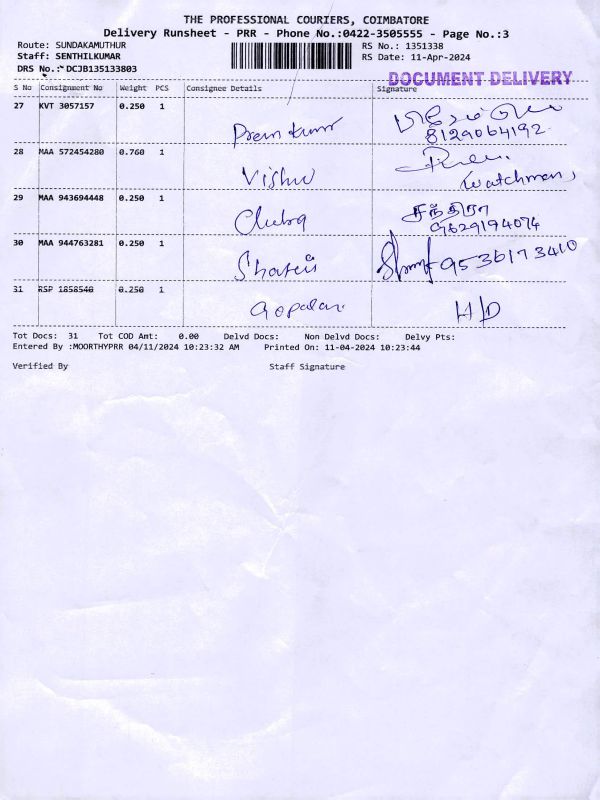 THE PROFESSIONAL COURIERS, COIMBATORE
Delivery Runsheet - PRR - Phone No.:0422-3505555 - Page No.:3
Route: SUNDAKAMUTHUR RS No.: 1351338
Staff: SENTHILKUMAR RS Date: 11-Apr-2024
DRS No.: DCJB135133803
DOCUMENT DELIVERY
S No Consignment No Weight PCS Consignee Details Signature
27 KVT 3057157 0.250 1
Prem kumar 8129064192
28 MAA 572454280 0.760 1
Vishnu
Watchman
29 MAA 943694448 0.250 1 சந்திரா
Chitra 9629194074
30 MAA 944763281 0.250 1
9536173410
31 RSP 1858540 0.250 1
Gopalan H/D
Tot Docs: 31 Tot COD Amt: 0.00 Delvd Docs: Non Delvd Docs: Delvy Pts:
Entered By :MOORTHYPRR 04/11/2024 10:23:32 AM Printed On: 11-04-2024 10:23:44
Verified By Staff Signature